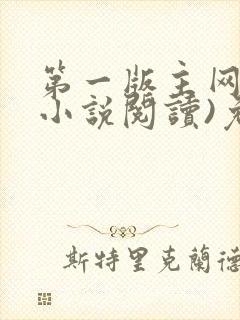 第一版主网
小説閱讀)免
斯特里克蘭德